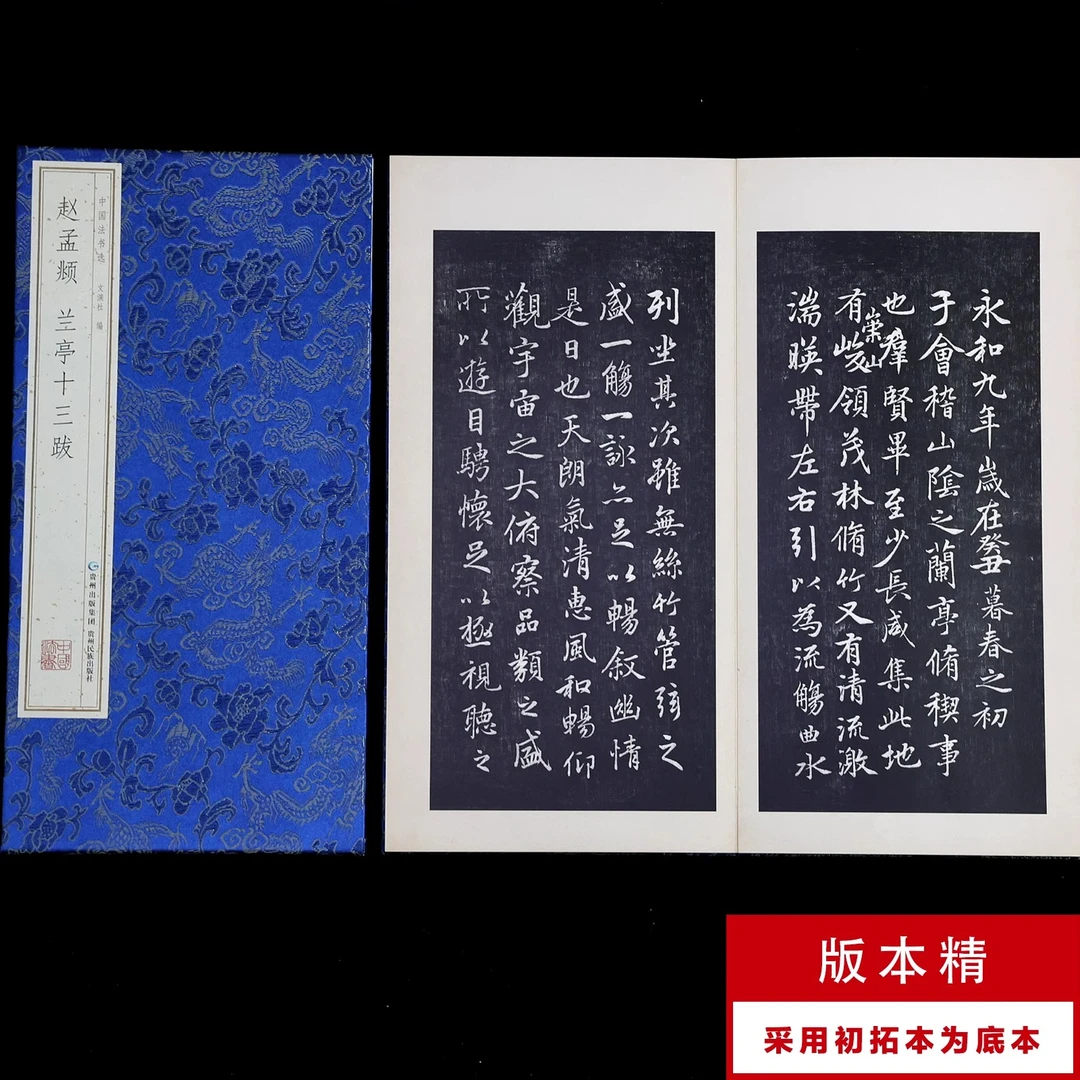 中国法书选 文溯社 编
赵孟頫 兰亭十三跋
贵州出版集团 贵州民族出版社
中國法書
永和九年歲在癸丑暮春之初
于會稽山陰之蘭亭脩稧事
也羣賢畢至少長咸集此地
有崇山峻領茂林脩竹又有清流激
湍暎帶左右引以為流觴曲水
列坐其次雖無絲竹管弦之
盛一觴一詠亦足以暢敘幽情
是日也天朗氣清惠風和暢仰
觀宇宙之大俯察品類之盛
所以遊目騁懷足以極視聽之
版本精
采用初拓本为底本